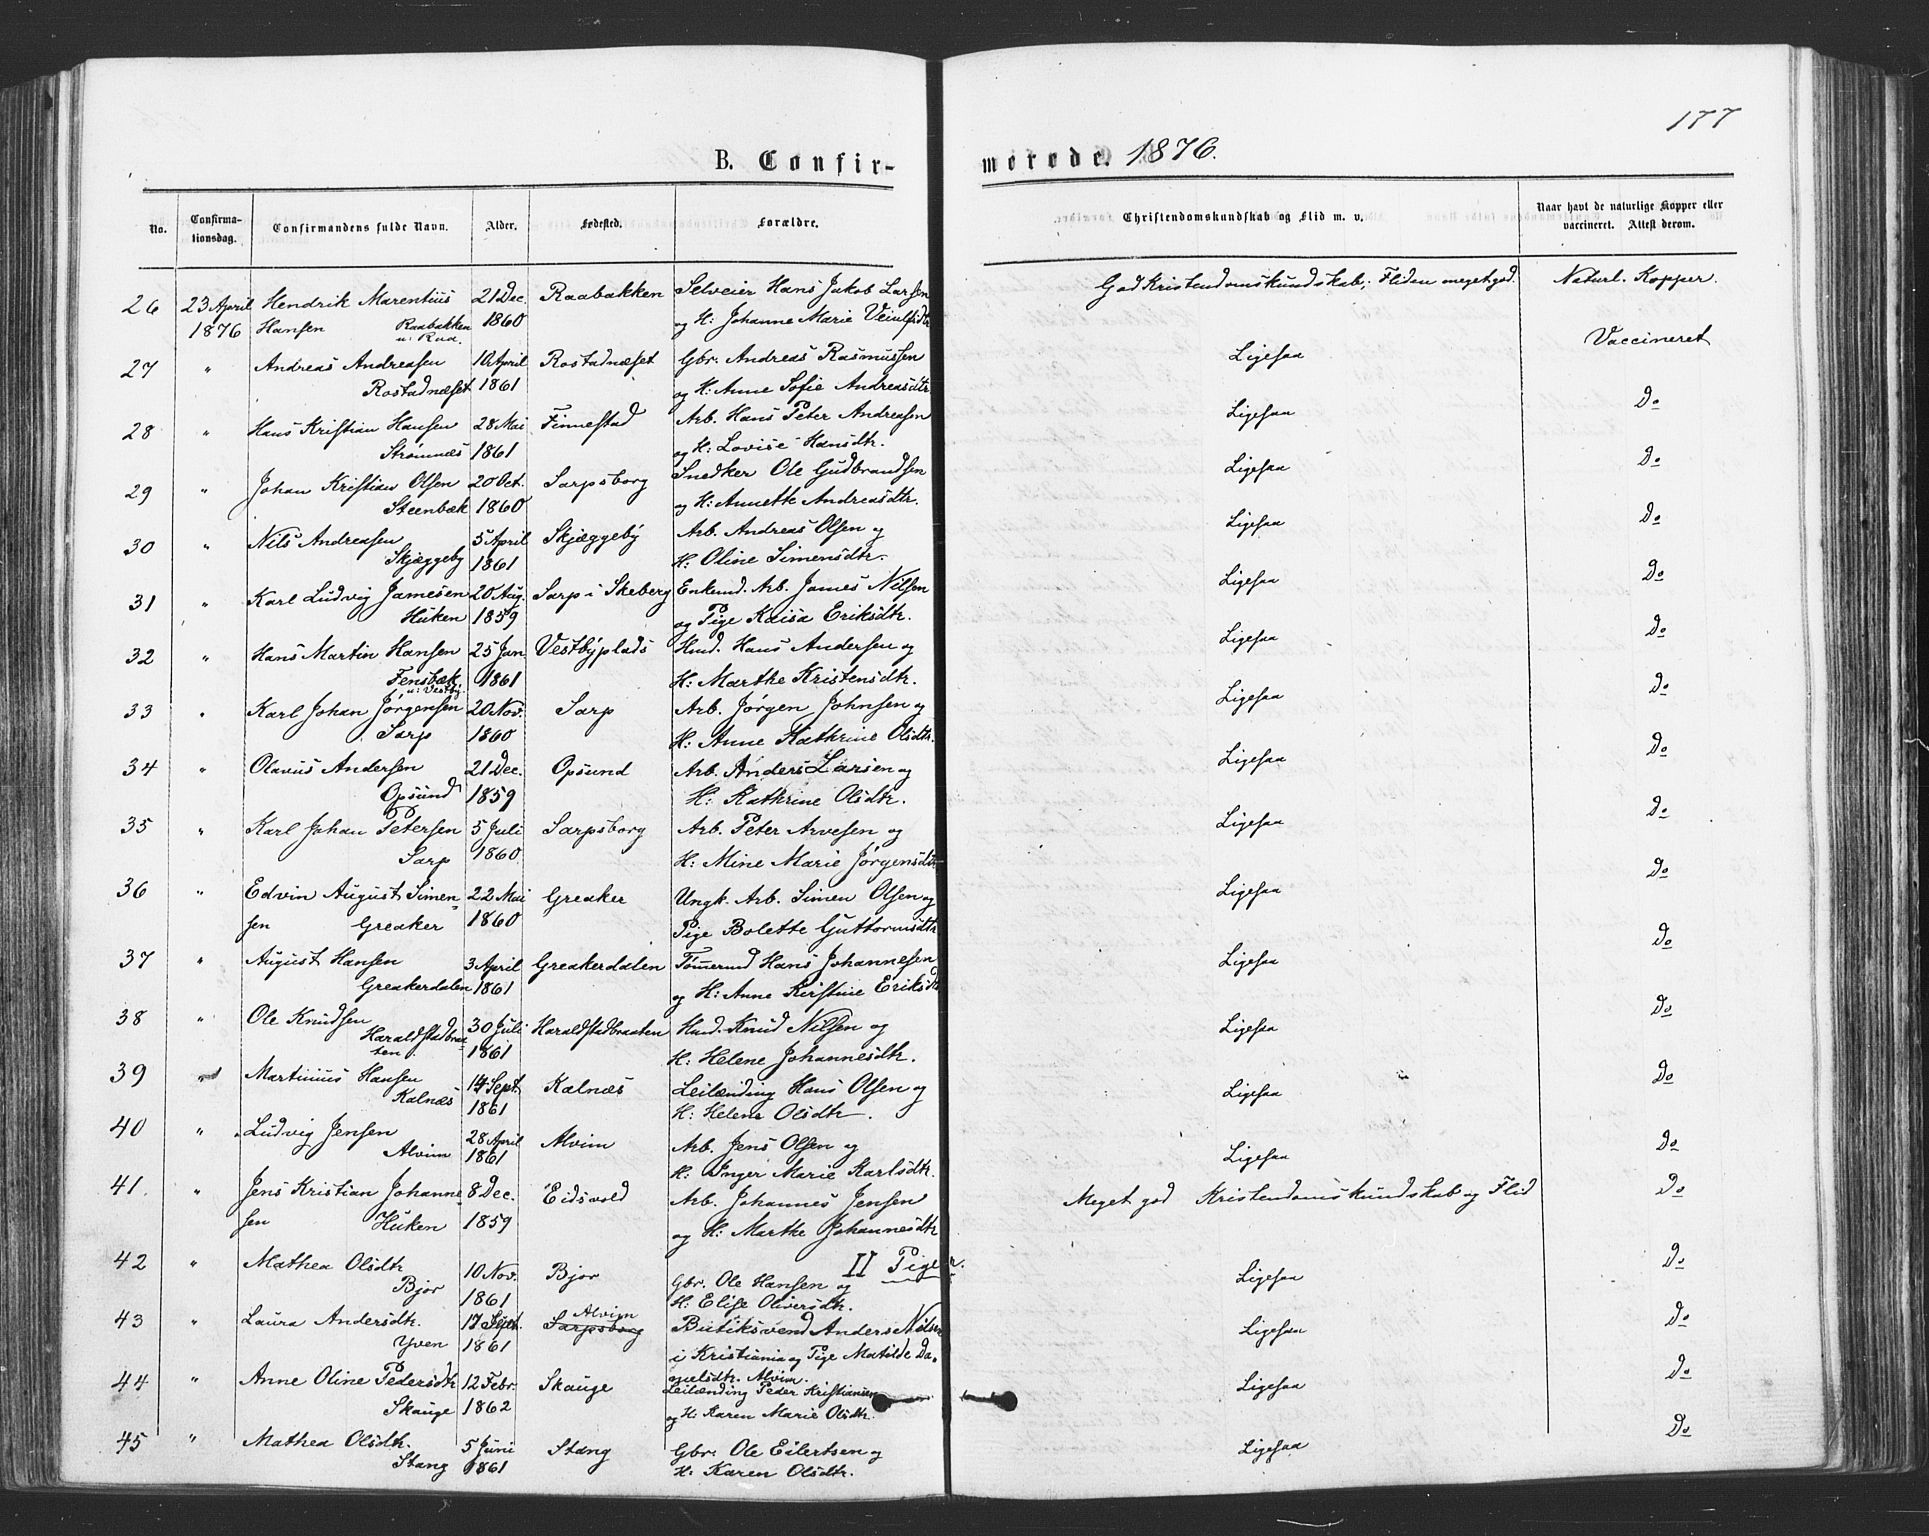 177
B. Confirmerede. 1876.
No. Confirmationsdag. Confirmandens fulde Navn. Alder. Fødested. Forældre. Christendomskundskab og Flid m. v. Naar havt de naturlige Kopper eller vaccineret. Attest derom.
26 23 April Hendrik Marentius 21 Dec. Raabakken Selveier Hans Jakob Larsen God Kristendomskundskab; Fliden meget god. Naturl. Kopper.
1876 Hansen Raabakken 1860 og H: Johanne Marie Veiulfsdtr
u: Raa.
27 " Andreas Andreasen 10 April Rostadnæset Gbr. Andreas Rasmussen Ligesaa Vaccineret
Rostadnæset 1861 og H: Anne Sofie Andreasdtr
28 " Hans Kristian Hansen 28 Mai Finnestad Arb. Hans Peter Andreasen Ligesaa Do
Strømnæs 1861 og H: Lovise Hansdtr.
29 " Johan Kristian Olsen 20 Oct. Sarpsborg Snedker Ole Gudbrandsen Ligesaa Do
Steenbæk 1860 og H: Annette Andreasdtr.
30 " Nils Andreasen 5 April Skjæggeby Arb. Andreas Olsen og Ligesaa Do
Skjæggeby 1861 H: Oline Simensdtr.
31 " Karl Ludvig Jamesen 20 Aug. Sarp i Skeberg Enkemd. Arb. James Nilsen Ligesaa Do
Huken 1859 og Pige Kaisa Eriksdtr.
32 " Hans Martin Hansen 25 Jan. Vestbyplads Hmd. Hans Andersen og Ligesaa Do
Fensbæk 1861 H: Marthe Kristensdtr.
u: Vestby.
33 " Karl Johan Jørgensen 20 Nov. Sarp Arb. Jørgen Johnsen og Ligesaa Do
Sarp 1860 H: Anne Kathrine Olsdtr.
34 " Olavus Andersen 21 Dec. Opsund Arb. Anders Larsen og Ligesaa Do
Opsund 1859 H: Kathrine Olsdtr.
35 " Karl Johan Petersen 5 Juli Sarpsborg Arb. Peter Arvesen og Ligesaa Do
Sarp 1860 H: Mine Marie Jørgensdtr
36 " Edvin August Simen- 22 Mai Greaker Ungk. Arb. Simen Olsen og Ligesaa Do
sen Greaker 1860 Pige Bolette Guttormsdtr
37 " August Hansen 3 April Greakerdalen Tømermd Hans Johannesen Ligesaa Do
Greakerdalen 1861 og H: Anne Kirstine Eriksdtr
38 " Ole Knudsen 30 Juli Haraldstadbraaten Hmd. Knud Nilsen og Ligesaa Do
Haraldstadbraa- 1861 H: Helene Johannesdtr.
ten.
39 " Martinius Hansen 14 Sept. Kalnæs Leilænding Hans Olsen og Ligesaa Do
Kalnæs 1861 H: Helene Olsdtr.
40 " Ludvig Jensen 28 April Alvim Arb. Jens Olsen og Ligesaa Do
Alvim 1861 H: Inger Marie Karlsdtr.
41. " Jens Kristian Johanne- 8 Dec. Eidsvold Arb. Johannes Jensen Meget god Kristendomskundskab og Flid Do
sen Huken 1859 og H: Marthe Johannesdtr
II Piger.
42 " Mathea Olsdtr 10 Nov. Bjor Gbr. Ole Hansen og Ligesaa Do
Bjor 1861 H: Elise Oliversdtr.
43 " Laura Andersdtr. 17 Sept. Sarpsborg Alvim Butiksvend Anders Nilsen Ligesaa Do
Yven 1861 i Kristiania og Pige Matilde Da-
nielsdtr. Alvim.
44 " Anne Oline Pedersdtr 12 Febr. Skauge Leilænding Peder Kristiansen Ligesaa Do
Skauge 1862 og H: Karen Marie Olsdtr.
45 " Mathea Olsdtr. 5 Juni Stang Gbr. Ole Eilertsen og Ligesaa Do
Stang 1861 H: Karen Olsdtr.